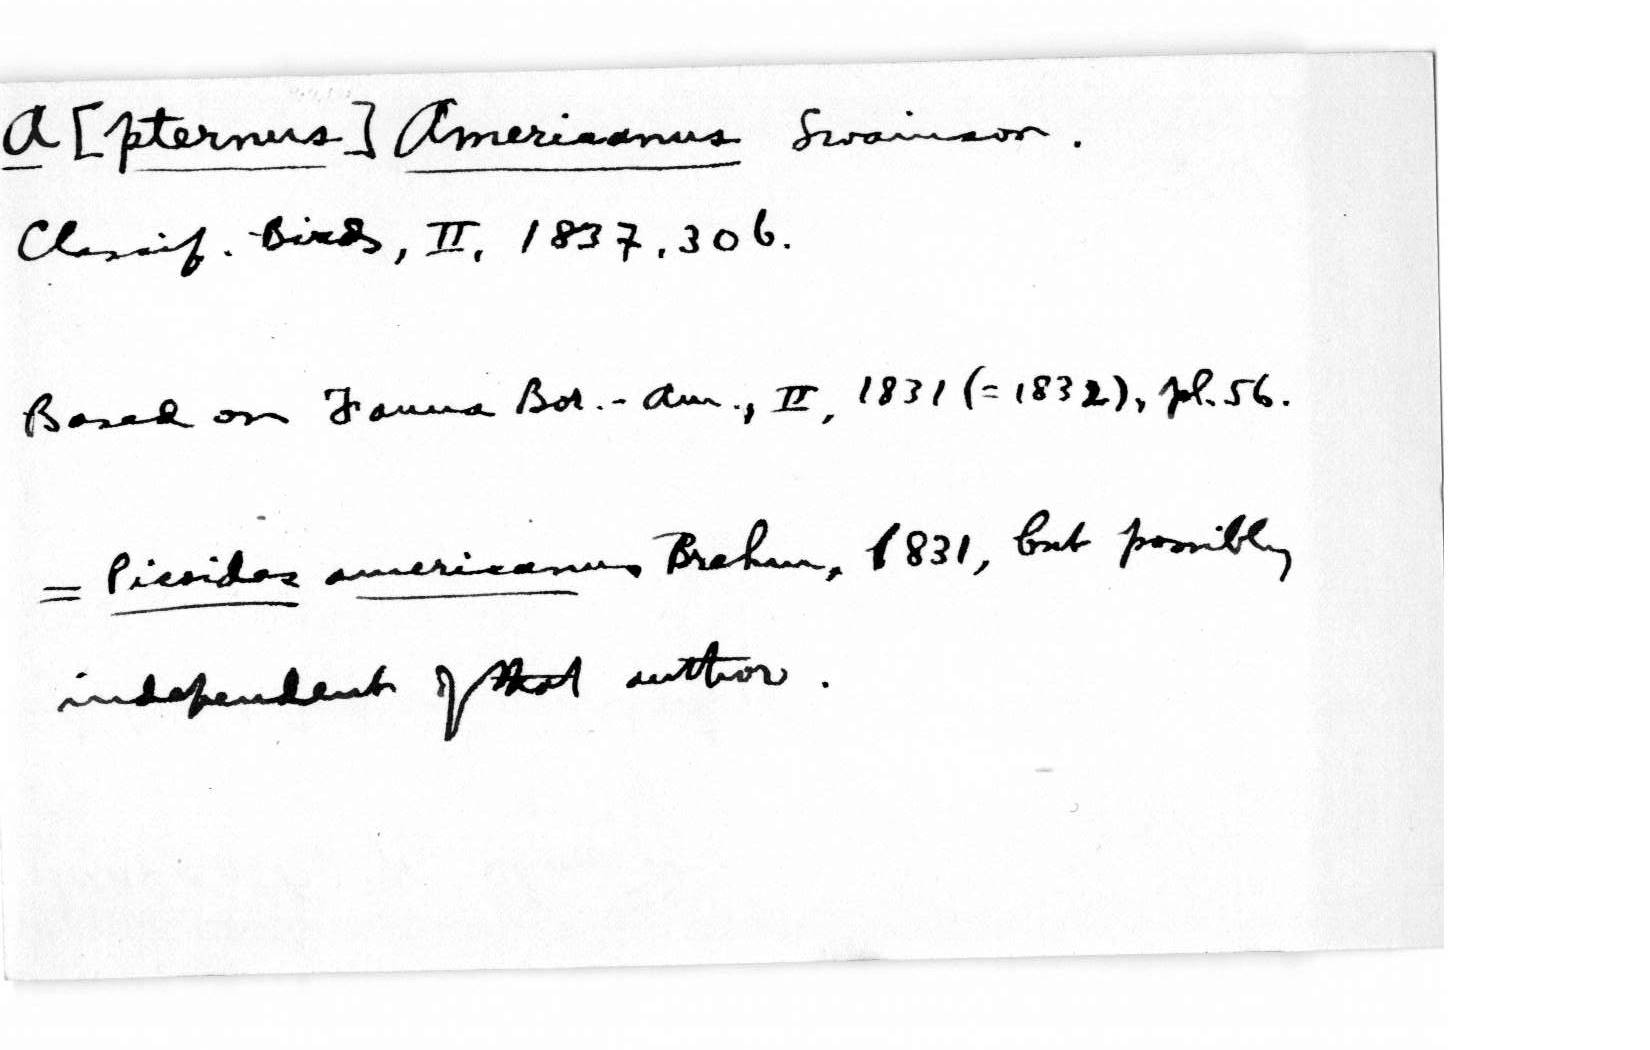 A[pternus] Americanus Swainson.
Classif. Birds, II, 1837, 306.
Based on Fauna Bor.-Am., II, 1831 (=1832), pl. 56.
= Picoides americanus Brehm, 1831, but possibly
independent of that author.